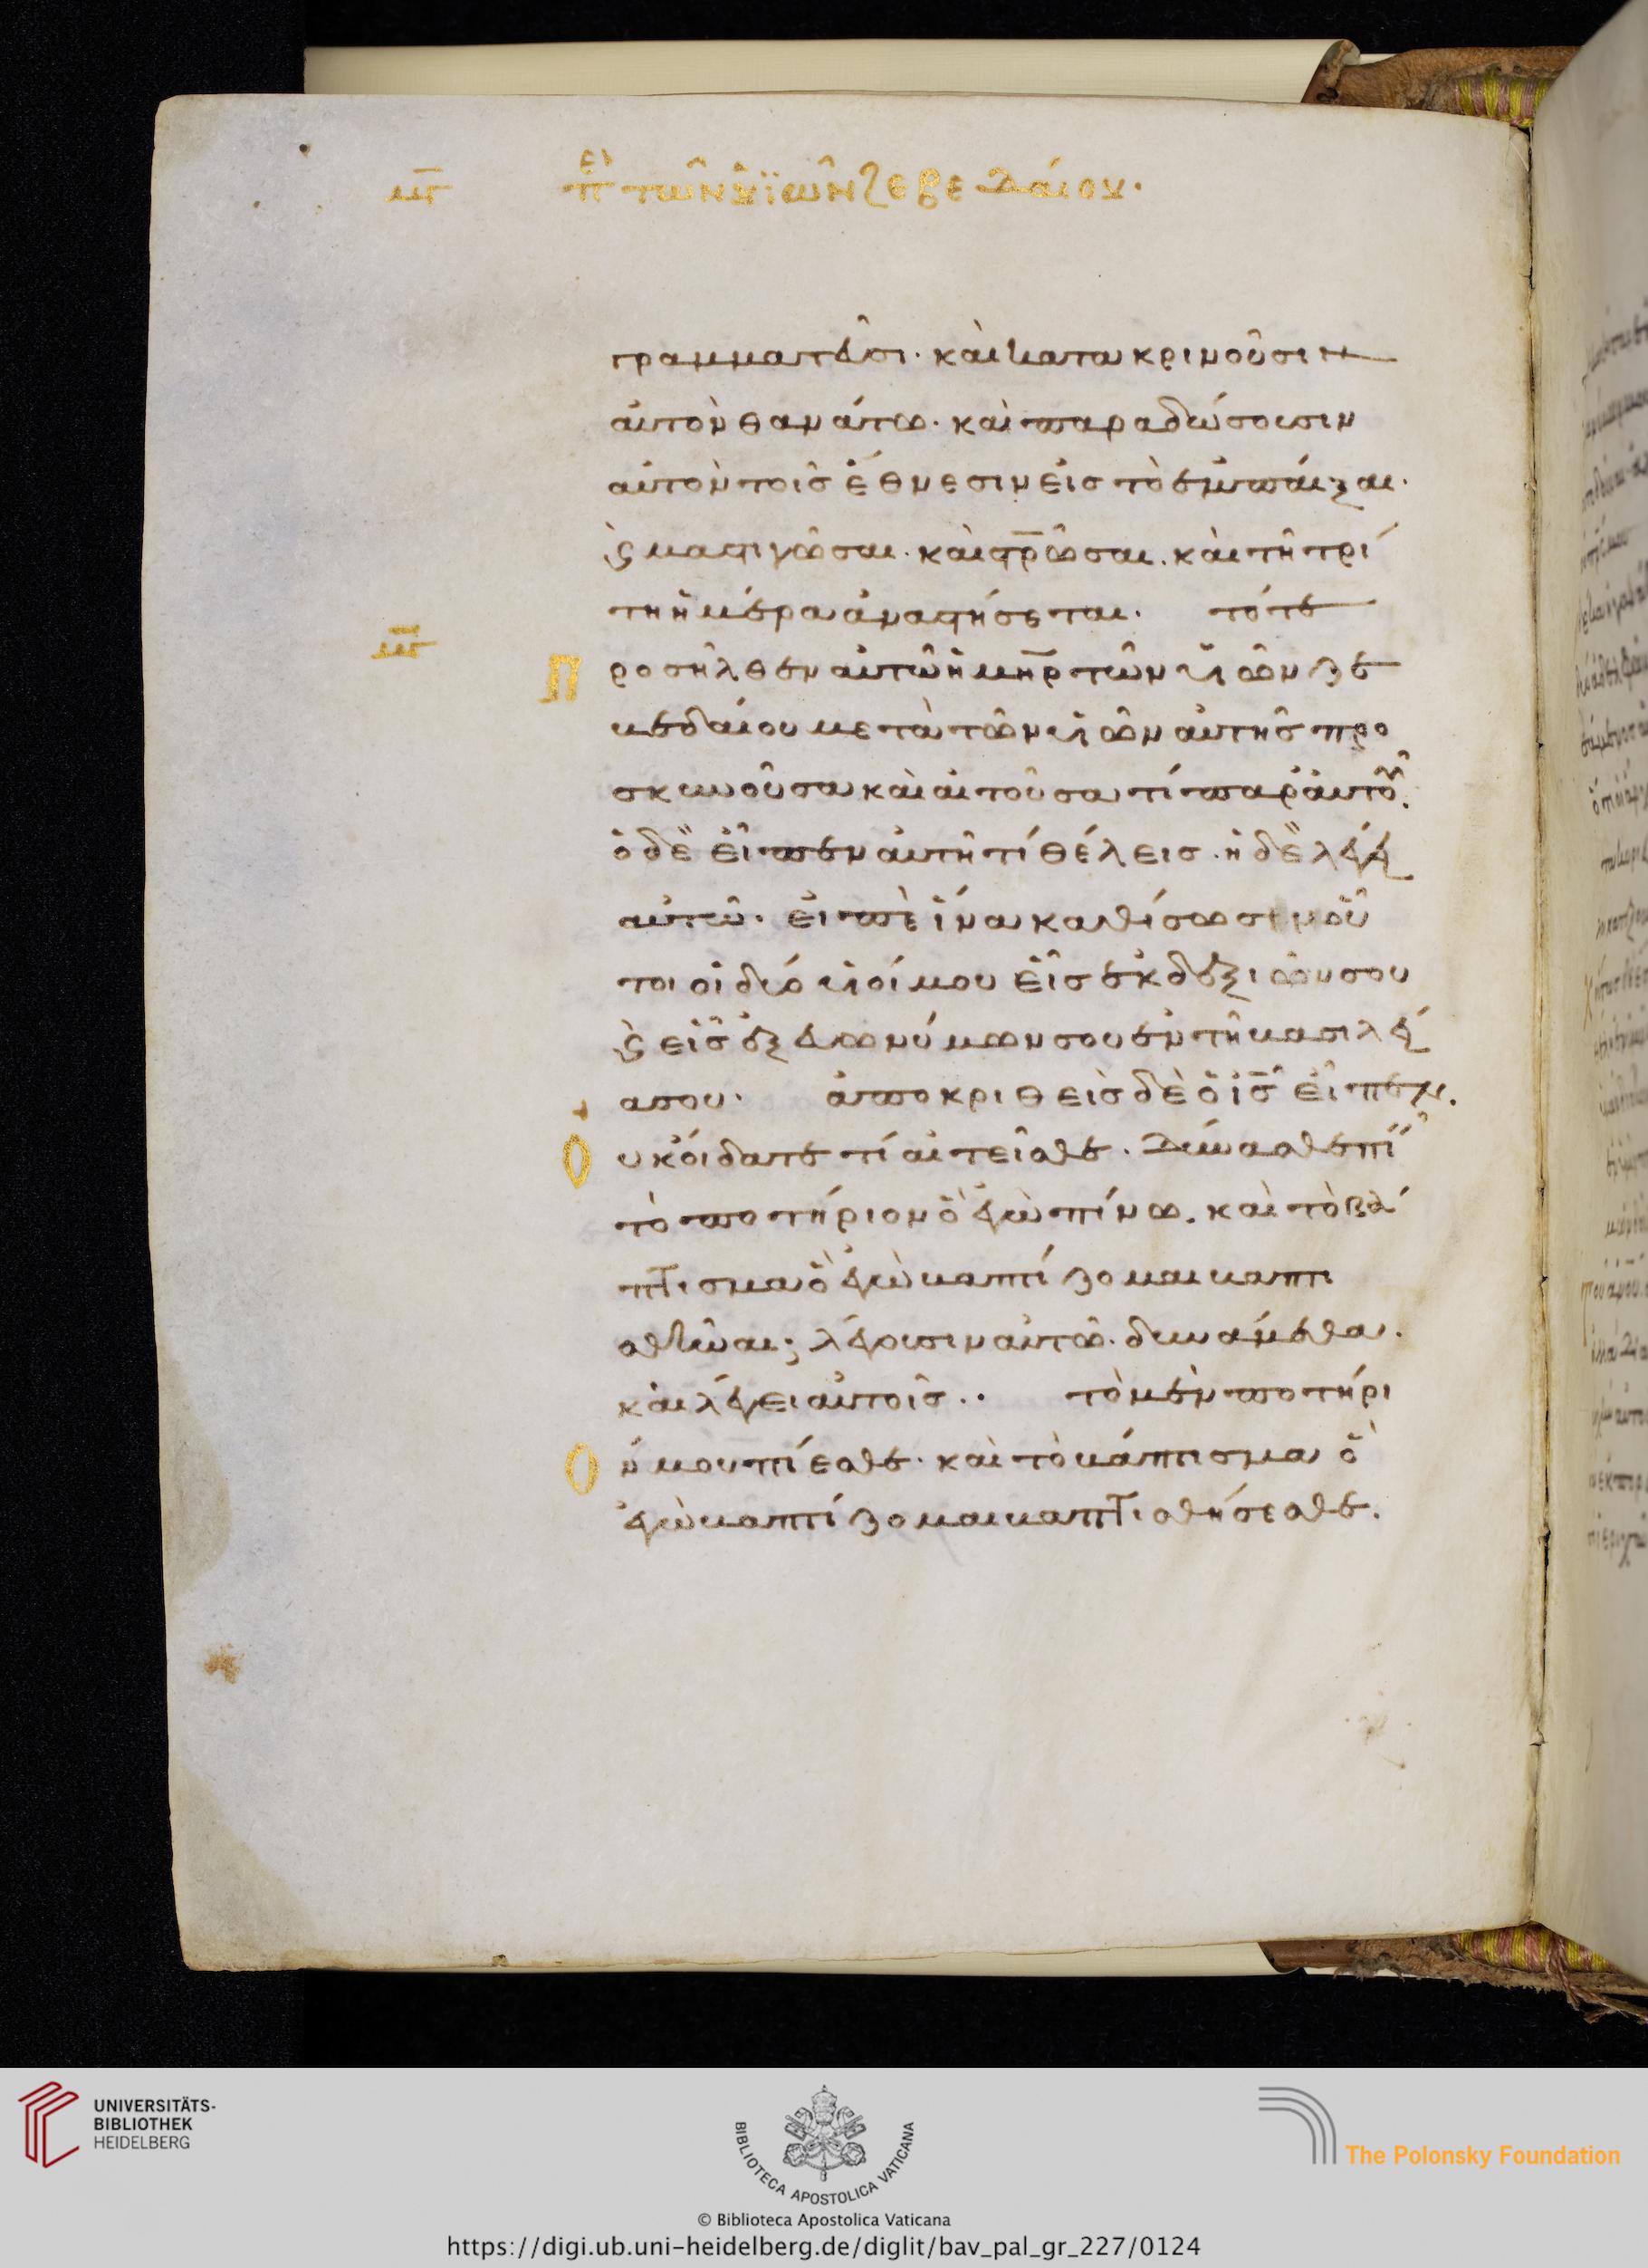 μγ περὶ τῶν υἱῶν ζεβεδαίου.
γραμματεῦσι· καὶ κατακρινοῦσιν
αὐτὸν θανάτω· καὶ παραδώσουσιν
αὐτὸν τοῖσ ἔθνεσιν εἰσ τὸ ἐμπαίξαι·
ϗ μαστιγῶσαι· καὶ στ̅ρῶσαι. καὶ τῆ τρί
τη ἡμέρα ἀναστήσεται. τότε
μγ
Προσῆλθεν αὐτῶ ἡ μη̅ρ τῶν υἱῶν ζε
βεδαίου μετὰ τῶν υἱῶν αὐτῆσ προ
σκυνοῦσα καὶ αἰτοῦσα τί παρ' αὐτοῦ.
ὁ δὲ εἶπεν αὐτῆ τί θέλεισ· ἡ δὲ λέγει
αὐτῶ· εἰπὲ ἵνα καθίσωσιν οὗ
τοι οἱ δύο υἱοί μου εἷσ ἐκ δεξιῶν σου
ϗ εἷσ ἐξ εὐωνύμων σου ἐν τῆ βασιλεί
α σου· ἀποκριθεὶσ δὲ ὁ ι̅σ̅ εἶπεν.
Ουκ οἴδατε τί αἰτεῖσθε· Δύνασθε πιεῖν
τὸ ποτήριον ὃ ἐγὼ πίνω. καὶ τὸ βά
πτισμα ὃ ἐγὼ βαπτίζομαι βαπτι
σθῆναι; λέγουσιν αὐτῶ· δυνάμεθα.
καὶ λέγει αὐτοῖσ.· τὸ μὲν ποτήρι
Ον μου πίεσθε· καὶ τὸ βάπτισμα ὃ
ἐγὼ βαπτίζομαι βαπτισθήσεσθε.
UNIVERSITÄTS-
BIBLIOTHEK
HEIDELBERG
BIBLIOTECA APOSTOLICA VATICANA
The Polonsky Foundation
© Biblioteca Apostolica Vaticana
https://digi.ub.uni-heidelberg.de/diglit/bav_pal_gr_227/0124